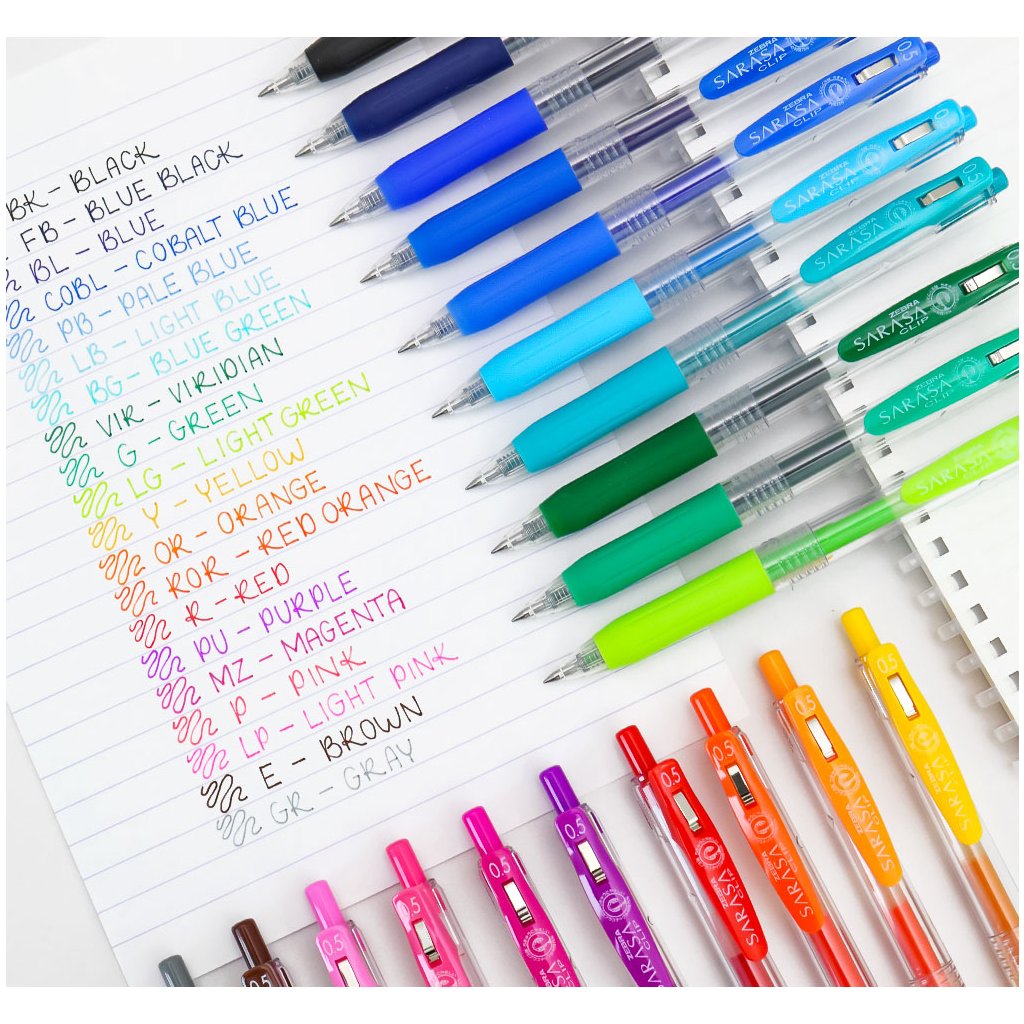 BK - BLACK
FB - BLUE BLACK
BL - BLUE
COBL - COBALT BLUE
PB - PALE BLUE
LB - LIGHT BLUE
BG - BLUE GREEN
VIR - VIRIDIAN
G - GREEN
LG - LIGHT GREEN
Y - YELLOW
OR - ORANGE
ROR - RED ORANGE
R - RED
PU - PURPLE
MZ - MAGENTA
P - PINK
LP - LIGHT PINK
E - BROWN
GR - GRAY
ZEBRA
SARASA
CLIP
0.5
ZEBRA
SARASA
CLIP
0.5
ZEBRA
SARASA
CLIP
0.5
ZEBRA
SARASA
CLIP
ZEBRA
SARASA
CLIP
ZEBRA
SARASA
CLIP
SARASA
0.5
0.5
0.5
0.5
ZEBRA
SARASA
CLIP
0.5
ZEBRA
SARASA
CLIP
0.5
ZEBRA
SARASA
CLIP
0.5
ZEBRA
SARASA
CLIP
0.5
ZEBRA
SARASA
CLIP
0.5
ZEBRA
SARASA
CLIP
0.5